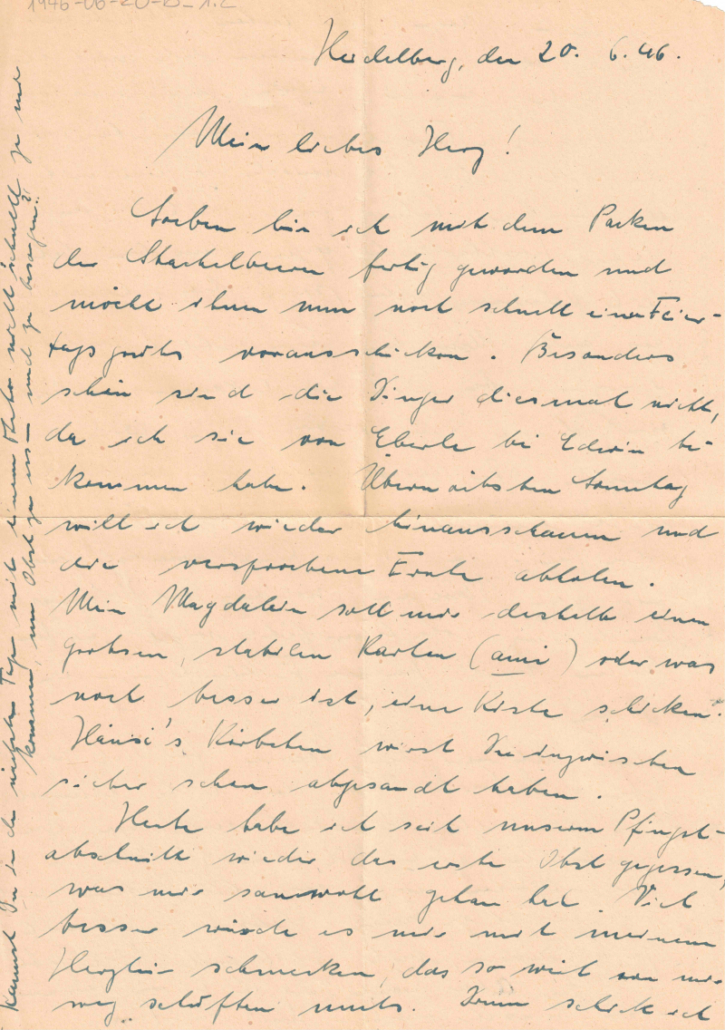 1946-06-20-D_1.2
Heidelberg, den 20. 6. 46.
Mein liebes Herz!
Soeben bin ich mit dem Packen
der Stachelbeeren fertig geworden und
möcht ihnen nun noch schnell einen Feier-
tagsgruß vorausschicken. Besonders
schön sind die Dinger diesmal nicht,
da ich sie von Eberle bei Edwin be-
kommen habe. Übernächsten Sonntag
will ich wieder hinausschauen und
die versprochene Ernte abholen.
Mein Magdalein soll mir deshalb einen
großen, stabilen Karton (ami) oder was
noch besser ist, eine Kiste schicken.
Hansi's Körbchen wirst Du inzwischen
sicher schon abgesandt haben.
Heute habe ich seit unserm Pfingst-
abschnitt wieder das erste Obst gegessen,
was mir sauwohl getan hat. Viel
besser würde es mir mit meinem
Herzlein schmecken, das so weit von mir
weg schuften muß. Drum schick ich
Kannst Du in den nächsten Tagen mit einem Auto nicht schnell zu mir
kommen, um Obst zu essen und zu besorgen?